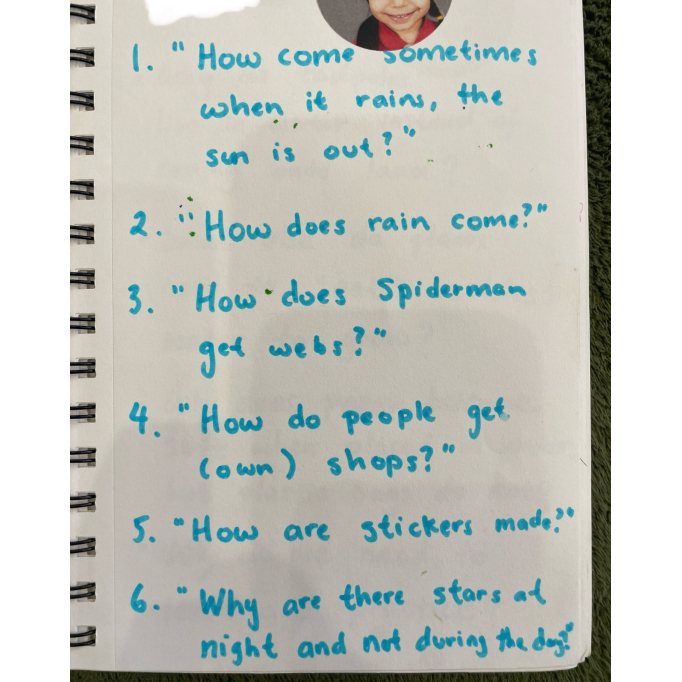 1. "How come sometimes
when it rains, the
sun is out?"
2. "How does rain come?"
3. "How does Spiderman
get webs?"
4. "How do people get
(own) shops?"
5. "How are stickers made?"
6. "Why are there stars at
night and not during the day?"